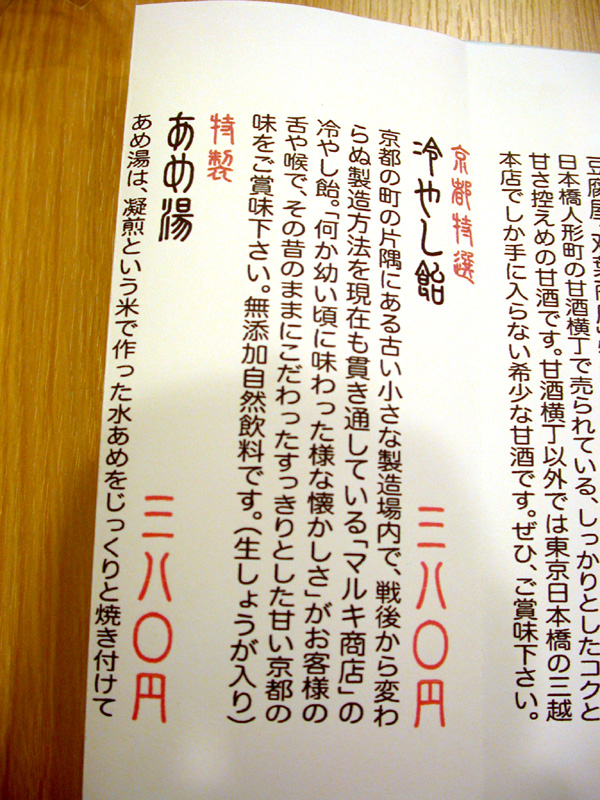 豆腐屋
日本橋人形町の甘酒横丁で売られている、しっかりとしたコクと
甘さ控えめの甘酒です。甘酒横丁以外では東京日本橋の三越
本店でしか手に入らない希少な甘酒です。ぜひ、ご賞味下さい。
京都特選
冷やし飴
三八〇円
京都の町の片隅にある古い小さな製造場内で、戦後から変わ
らぬ製造方法を現在も貫き通している「マルキ商店」の
冷やし飴。「何か幼い頃に味わった様な懐かしさ」がお客様の
舌や喉で、その昔のままにこだわったすっきりとした甘い京都の
味をご賞味下さい。無添加自然飲料です。(生しょうが入り)
特製
あめ湯
三八〇円
あめ湯は、凝煎という米で作った水あめをじっくりと焼き付けて